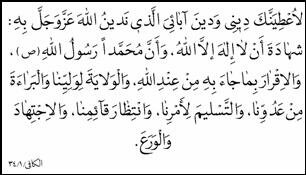 لأُعْطِيَنَّكَ دِينِي وَدِينَ آبَائِيَ الَّذِي نَدِينُ اللهَ عَزَّ وَجَلَّ بِهِ:
شَهَادَةَ أَنْ لاَ إِلَهَ إِلاَّ اللهُ، وَأَنَّ مُحَمَّداً رَسُولُ اللهِ (ص)،
وَالإِقْرَارَ بِمَا جَاءَ بِهِ مِنْ عِنْدِ اللهِ، وَالْوَلاَيَةَ لِوَلِيِّنَا وَالْبَرَاءَةَ
مِنْ عَدُوِّنَا، وَالتَّسْلِيمَ لِأَمْرِنَا، وَانْتِظَارَ قَائِمِنَا، وَالاِجْتِهَادَ
وَالْوَرَعَ.
الكافي/١/٣٤